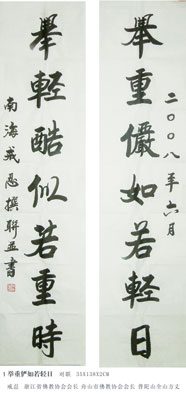 舉重儼如若輕日
二〇〇八年六月
舉輕酷似若重時
南海戒忍撰聯並書
1 举重俨如若轻日 对联 35X138X2CM
戒忍 浙江省佛教协会会长 舟山市佛教协会会长 普陀山全山方丈